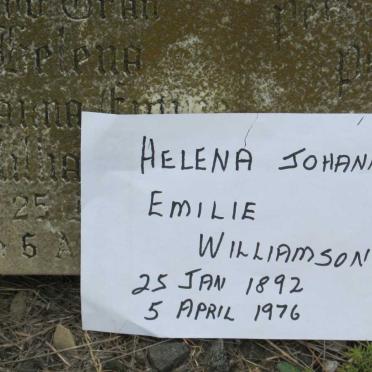 Helena
25
HELENA JOHAN
EMILIE
WILLIAMSON
25 JAN 1892
5 APRIL 1976